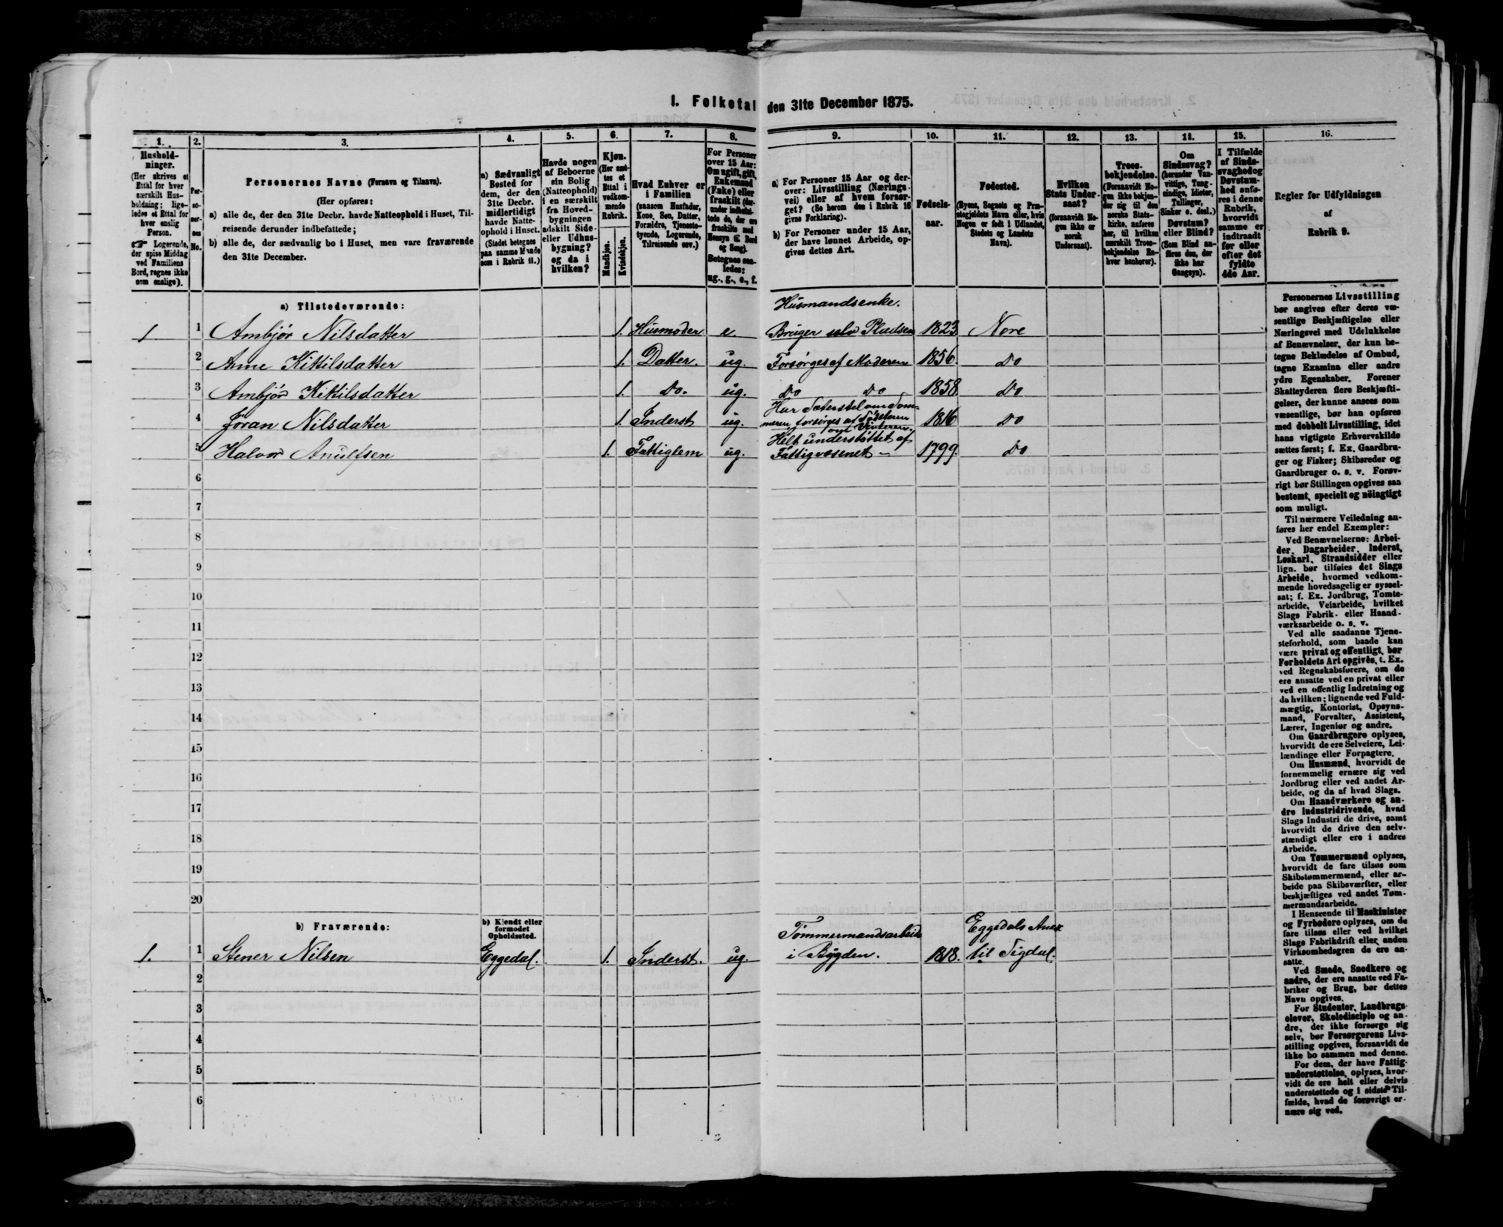 1. Folketal den 31te December 1875.
1.
Hushold-
ninger.
(Her skrives et
Ettal for hver
særskilt Hus-
holdning; lige-
ledes et Ettal for
hver enslig
Person.
Logerende,
der spise Middag
ved Familiens
Bord, regnes ikke
som enslige).
2.
Per-
so-
ner-
nes
No.
3.
Personernes Navne (Fornavn og Tilnavn).
(Her opføres:
a) alle de, der den 31te Decbr. havde Natteophold i Huset, Til-
reisende derunder indbefattede;
b) alle de, der sædvanlig bo i Huset, men vare fraværende
den 31te December.
4.
a) Sædvanligt
Bosted for
dem, der den
31te Decbr.
midlertidigt
havde Natte-
ophold i Huset.
(Stedet betegnes
paa samme Maade
som i Rubrik 11.)
5.
Havde nogen
af Beboerne
sin Bolig
(Natteophold)
i en særskilt
fra Hoved-
bygningen
adskilt Side-
eller Udhus-
bygning?
og da i
hvilken?
6.
Kjøn.
(Her sæt-
tes et
Ettal i
vedkom-
mende
Rubrik.
Mandkjøn.
Kvindekjøn.
7.
Hvad Enhver er
i Familien
(saasom Husfader,
Kone, Søn, Datter,
Forældre, Tjeneste-
tyende, Logerende,
Tilreisende osv.)
8.
For Personer
over 15 Aar:
Om ugift, gift,
Enkemand
(Enke) eller
fraskilt (der-
under indbefat-
tede de, der ere
fraskilte med
Hensyn til Bord
og Seng).
Betegnes saa-
ledes:
ug., g., e., f.
9.
a) For Personer 15 Aar og der-
over: Livsstilling (Nærings-
vei) eller af hvem forsør-
get? (Se herom den i Rubrik 16
givne Forklaring).
b) For Personer under 15 Aar,
der have lønnet Arbeide, op-
gives dettes Art.
10.
Fødsels-
aar.
11.
Fødested.
(Byens, Sognets og Præ-
stegjeldets Navn eller, hvis
Nogen er født i Udlandet,
Stedets og Landets
Navn).
12.
Hvilken
Stats Under-
saat?
(forsaavidt No-
gen ikke er
norsk
Undersaat).
13.
Troes-
bekjendelse.
(Forsaavidt No-
gen ikke bekjen-
der sig til den
norske Stats-
kirke, anføres
her, til hvilken
særskilt Troes-
bekjendelse En-
hver henhører).
14.
Om
Sindssvag?
(herunder Van-
vittige, Tung-
sindige, Idioter,
Tullinger,
Sinker o. desl.)
Døvstum?
eller Blind?
(Som Blind an-
føres den, der
ikke har
Gangsyn).
15.
I Tilfælde
af Sinds-
svaghed og
Døvstum-
hed anfø-
res i denne
Rubrik,
hvorvidt
samme er
indtraadt
før eller
efter det
fyldte
4de Aar.
16.
Regler for Udfyldningen
af
Rubrik 9.
a) Tilstedeværende:
Husmandsenke.
1 1 Ambjør Nilsdatter 1. Husmoder e Bruger Pladsen 1823 Nore
2 Anne Kittilsdatter 1. Datter. ug. Forsørges af Moderen 1856. Do
3 Ambjør Kittilsdatter 1. Do. ug. Do Do 1858. Do
4 Jøran Nilsdatter 1. Inderst ug. 1816 Do
Helt understøttet af
5 Halvor Anulfsen 1. Fattiglem ug. Fattigvæsenet 1799. Do
6
7
8
9
10
11
12
13
14
15
16
17
18
19
20
b) Fraværende:
b) Kjendt eller
formodet
Opholdssted.
Tømmermandsarbeide Eggedals Anex
1. 1 Stener Nilsen Eggedal. 1. Inderst. ug. i Bygden. 1818. til Sigdal.
2
3
4
5
6
Personernes Livsstilling
bør angives efter deres væ-
sentlige Beskjæftigelse eller
Næringsvei med Udelukkelse
af Benævnelser, der kun be-
tegne Beklædelse af Ombud,
tagne Examina eller andre
ydre Egenskaber. Forener
Skatteyderen flere Beskjæfti-
gelser, der kunne ansees som
væsentlige, bør han opføres
med dobbelt Livsstilling, idet
hans vigtigste Erhvervskilde
sættes først; f. Ex. Gaardbru-
ger og Fisker; Skibsreder og
Gaardbruger o. s. v. Forøv-
rigt bør Stillingen opgives saa
bestemt, specielt og nöiagtigt
som muligt.
Til nærmere Veiledning an-
føres her endel Exempler:
Ved Benævnelserne: Arbei-
der, Dagarbeider, Inderst,
Løskarl, Strandsidder eller
lign. bør tilføies det Slags
Arbeide, hvormed vedkom-
mende hovedsagelig er syssel-
sat; f. Ex. Jordbrug, Tomte-
arbeide, Veiarbeide, hvilket
Slags Fabrik- eller Haand-
værksarbeide o. s. v.
Ved alle saadanne Tjene-
steforhold, som baade kan
være privat og offentligt, bør
Forholdets Art opgives, t. Ex.
ved Regnskabsførere, om de
ere ansatte ved en privat eller
ved en offentlig Indretning og
da hvilken; lignende ved Fuld-
mægtig, Kontorist, Opsyns-
mand, Forvalter, Assistent,
Lærer, Ingeniør og andre.
Om Gaardbrugere oplyses,
hvorvidt de ere Selveiere, Lei-
lændinge eller Forpagtere.
Om Husmænd, hvorvidt de
fornemmelig ernære sig ved
Jordbrug eller ved andet Ar-
beide, og da af hvad Slags.
Om Haandværkere og an-
dre Industridrivende, hvad
Slags Industri de drive, samt
hvorvidt de drive den selv-
stændigt eller ere i andres
Arbeide.
Om Tømmermænd oplyses,
hvorvidt de fare tilsøs som
Skibstømmermænd, eller ar-
beide paa Skibsværfter, eller
beskjæftiges ved andet Tøm-
mermandsarbeide.
I Henseende til Maskinister
og Fyrbødere oplyses, om de
fare tilsøs eller ved hvilket
Slags Fabrikdrift eller anden
Virksomhedsgren de ere an-
satte.
Ved Smede, Snedkere og
andre, der ere ansatte ved Fa-
briker og Brug, bør dettes
Navn opgives.
For Studenter, Landbrugs-
elever, Skoledisciple og an-
dre, der ikke forsørge sig
selv, bør Forsørgerens Livs-
stilling opgives, forsaavidt de
ikke bo sammen med denne.
For dem, der have Fattig-
understøttelse, oplyses, hvor-
vidt de ere helt eller delvis
understøttede og i sidste Til-
fælde, hvad de forøvrigt er-
nære sig ved.